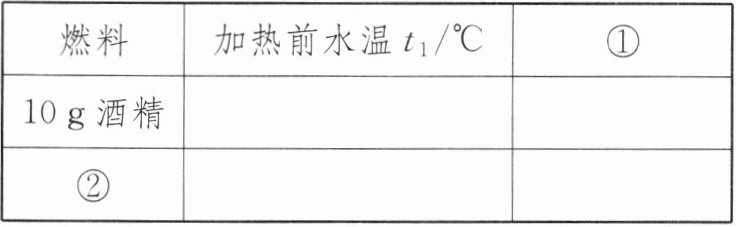 燃料 加热前水温 t₁/℃ ①
10 g 酒精
②